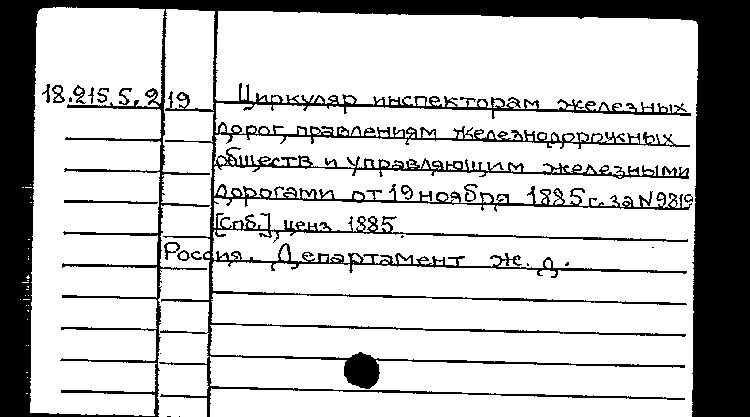 18.215.5.219 Циркуляр инспекторам железных
дорог, правлениям железнодорожных
обществ и управляющим железными
дорогами от 19 ноября 1885 г. за N 9819
[Спб.], ценз. 1885.
Россия. Департамент ж. д.